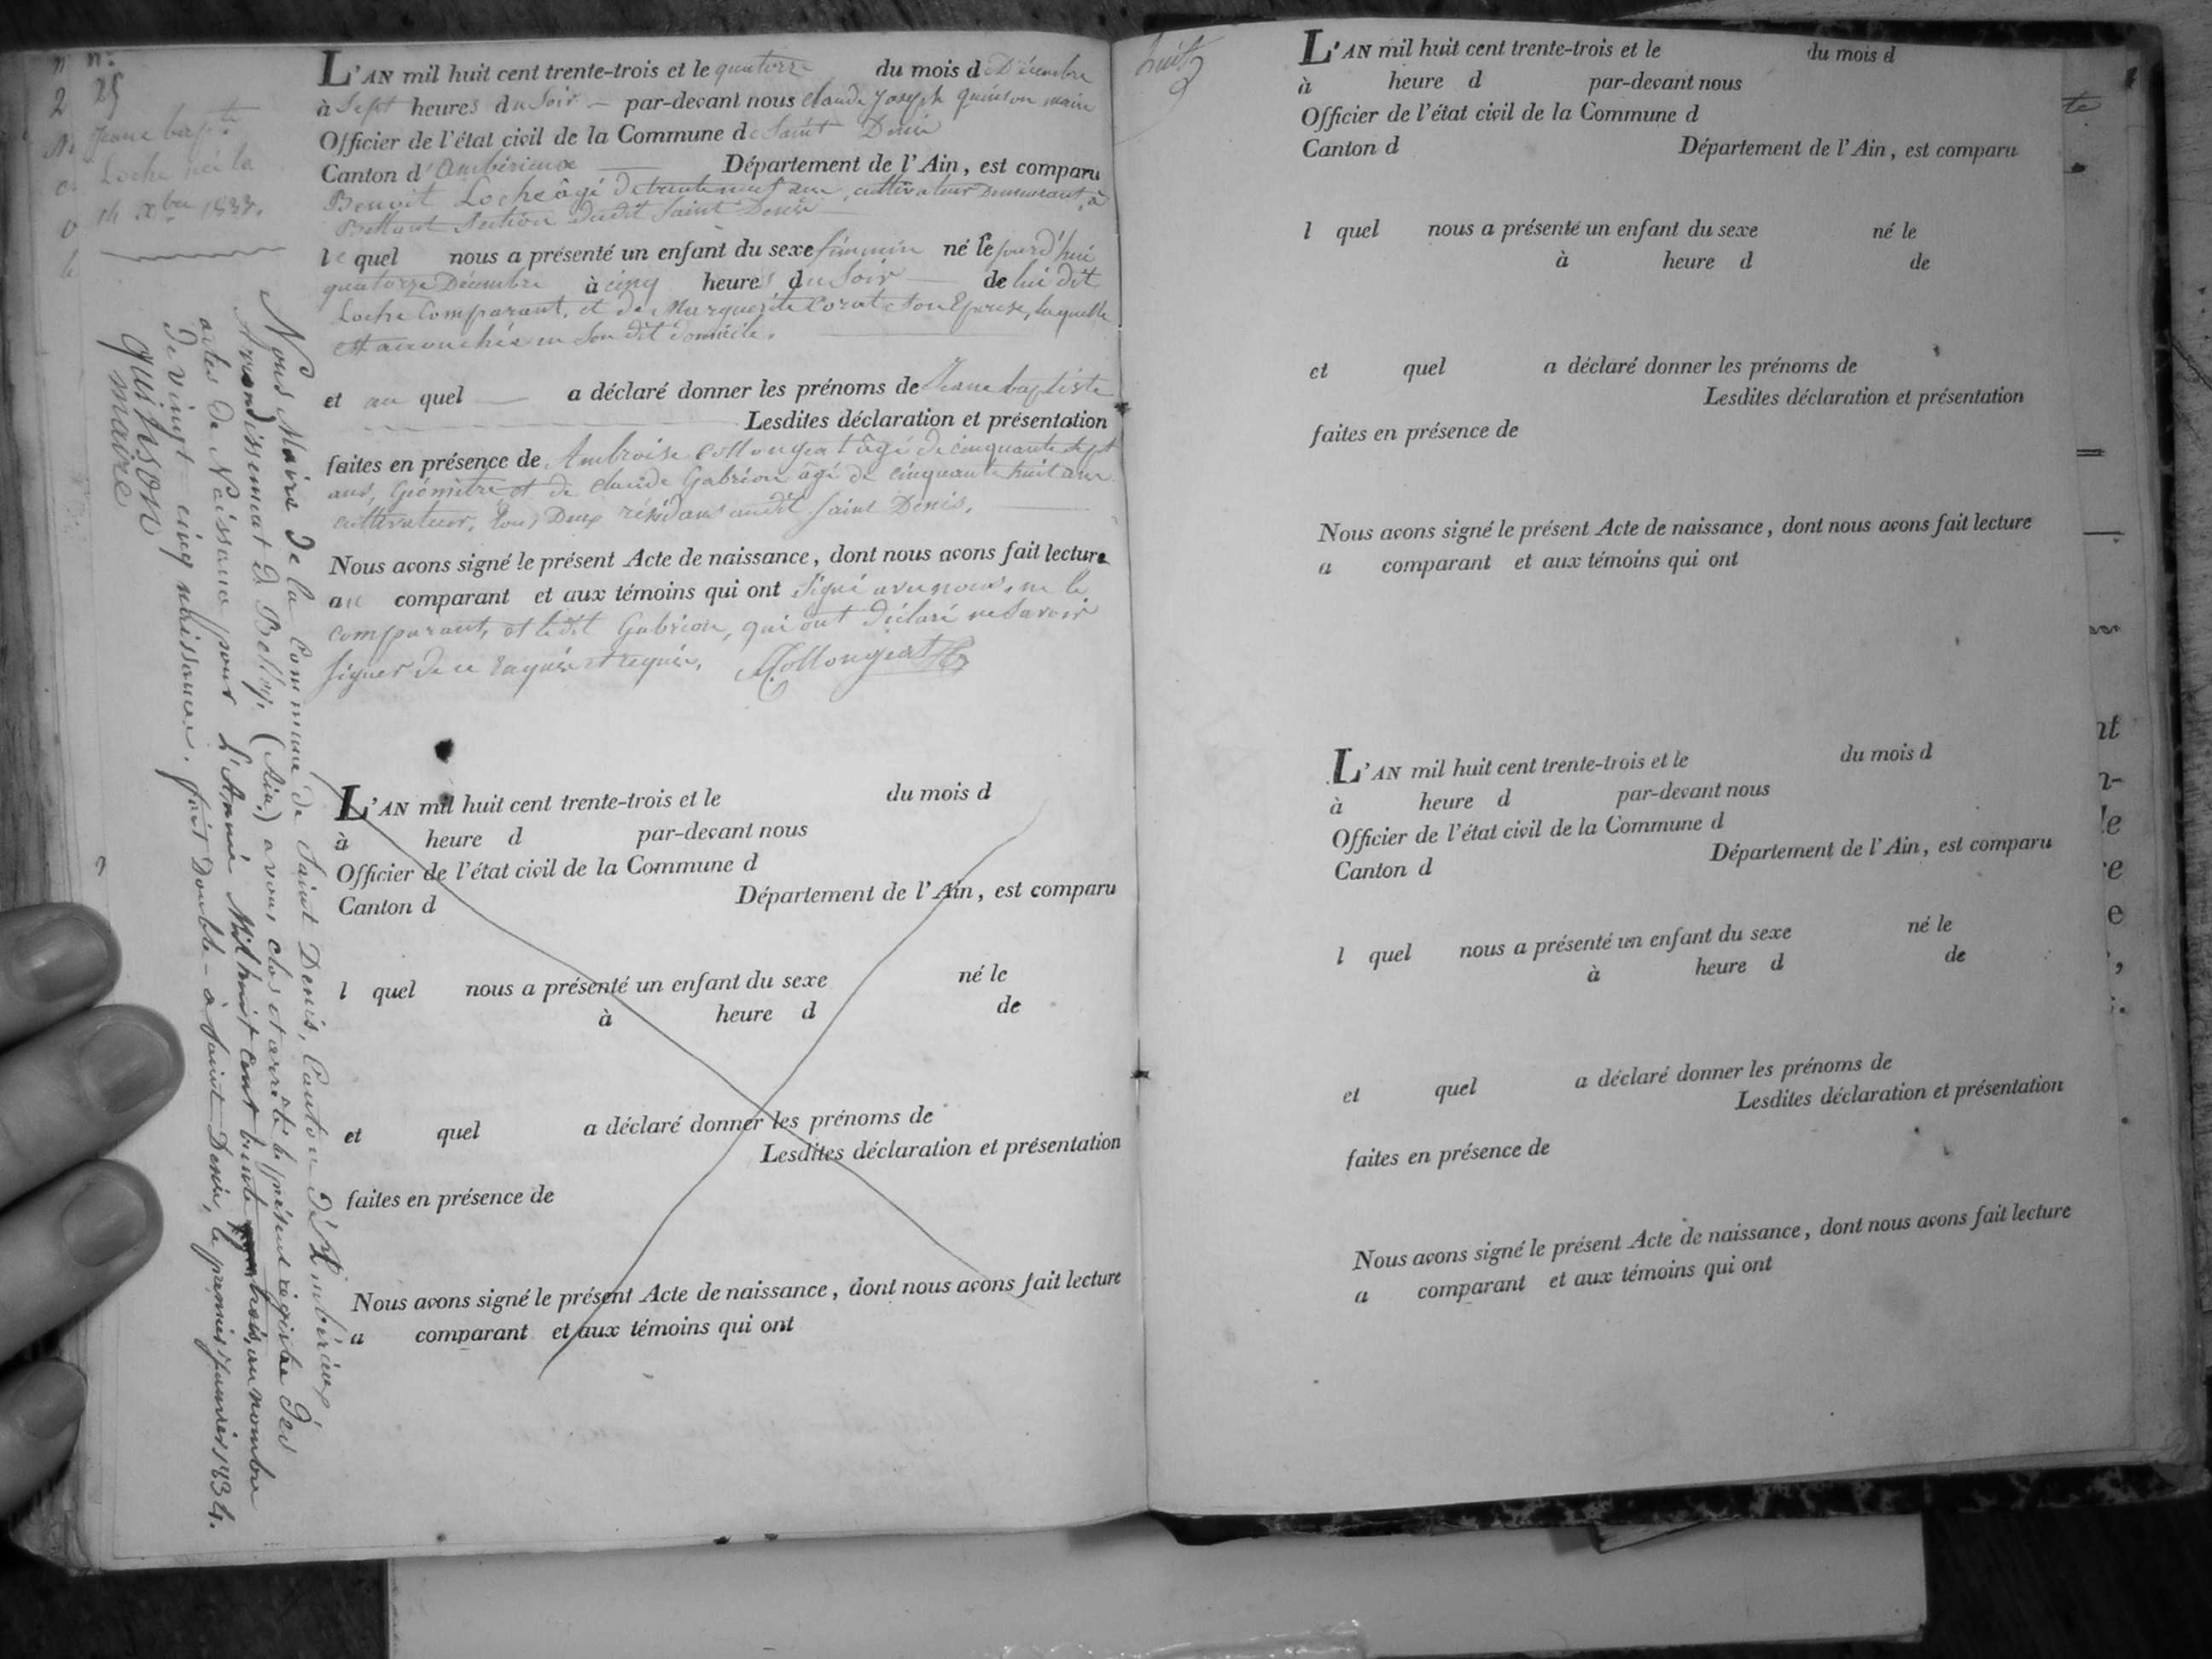 n.°
25
Jeane bap.te
Loche née la
14 Xbre 1833.
L'AN mil huit cent trente-trois et le quatorze du mois de Décembre
à Sept heures du Soir — par-devant nous Claude Joseph quinson maire
Officier de l'état civil de la Commune de Saint Denis
Canton d'Ambérieux Département de l'Ain, est comparu
Benoit Loche âgé de trente neuf ans, cultivateur Demeurant, à
Bettant Section dudit Saint Denis
le quel nous a présenté un enfant du sexe féminin né le jourd'hui
quatorze Décembre à cinq heures du Soir de lui dit
Loche Comparant, et de Marguerite Corat Son Epouse, laquelle
est accouchée en Son dit domicile.
et au quel a déclaré donner les prénoms de Jeane baptiste
Lesdites déclaration et présentation
faites en présence de Ambroise Collongeat âgé de cinquante sept
ans, Géomètre et de claude Gabrion âgé de cinquante huit ans
cultivateur, tous Deux résidans audit Saint Denis.
Nous avons signé le présent Acte de naissance, dont nous avons fait lecture
au comparant et aux témoins qui ont Signé avec nous, ne le
comparant, et ledit Gabrion, qui ont déclaré ne Savoir
Signer de ce Enquis et requis. Collongeat
Nous Maire de la Commune de Saint Denis, Canton d'Ambérieux
Arrondissement de Belley, (Ain,) avons clos et arrêté le présent régistre des
actes de Naissance pour L'Année Mil huit cent trente trois au nombre
de vingt-cinq naissances. fait Double à Saint Denis, le premier Janvier 1834.
quinson
maire
L'AN mil huit cent trente-trois et le du mois d
à heure d par-devant nous
Officier de l'état civil de la Commune d
Canton d Département de l'Ain, est comparu
l quel nous a présenté un enfant du sexe né le
à heure d de
et quel a déclaré donner les prénoms de
Lesdites déclaration et présentation
faites en présence de
Nous avons signé le présent Acte de naissance, dont nous avons fait lecture
a comparant et aux témoins qui ont
huit
L'AN mil huit cent trente-trois et le du mois d
à heure d par-devant nous
Officier de l'état civil de la Commune d
Canton d Département de l'Ain, est comparu
l quel nous a présenté un enfant du sexe né le
à heure d de
et quel a déclaré donner les prénoms de
Lesdites déclaration et présentation
faites en présence de
Nous avons signé le présent Acte de naissance, dont nous avons fait lecture
a comparant et aux témoins qui ont
L'AN mil huit cent trente-trois et le du mois d
à heure d par-devant nous
Officier de l'état civil de la Commune d
Canton d Département de l'Ain, est comparu
l quel nous a présenté un enfant du sexe né le
à heure d de
et quel a déclaré donner les prénoms de
Lesdites déclaration et présentation
faites en présence de
Nous avons signé le présent Acte de naissance, dont nous avons fait lecture
a comparant et aux témoins qui ont